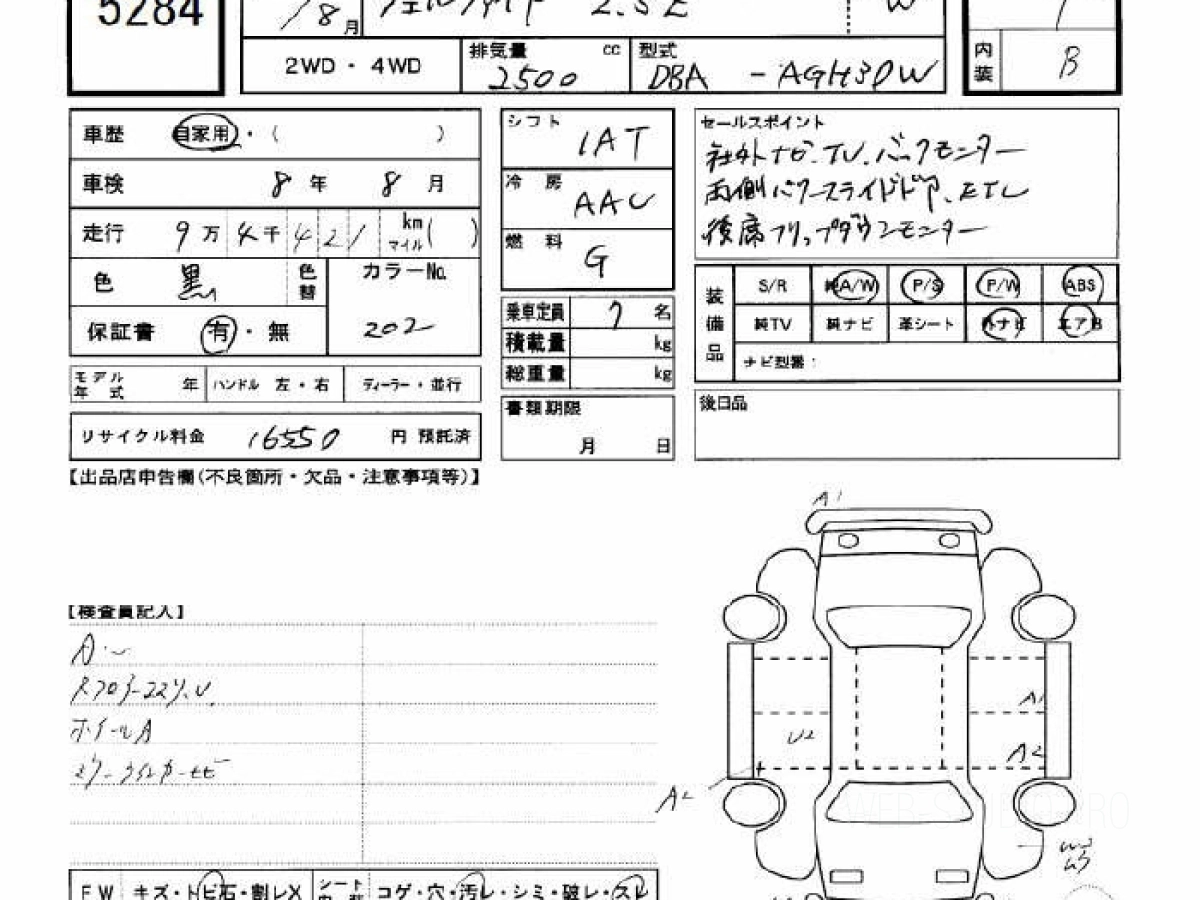 5284
8月
2.5E
2WD・4WD
排気量 cc
2500
型式
DBA -AGH30W
内装 B
車歴 自家用・( )
車検 8年 8月
走行 9万 4千 421 km マイル ( )
色 黒 色替
カラーNo.
202
保証書 有・無
モデル年式 年 ハンドル 左・右 ディーラー・並行
リサイクル料金 16550 円 預託済
シフト IAT
冷房 AAC
燃料 G
乗車定員 7 名
積載量 kg
総重量 kg
書類期限
月 日
セールスポイント
社外ナビ、TV、バックモニター
両側パワースライドドア、ETC
後席フリップダウンモニター
装備品
S/R 純A/W P/S P/W ABS
純TV 純ナビ 革シート 外ナビ エアB
ナビ型番:
後日品
【出品店申告欄(不良箇所・欠品・注意事項等)】
A1
【検査員記入】
ホイールA
A1
U2
A2
A2
W3
WEB-S BID.PRO
FW キズ・トビ石・割レX シート内張 コゲ・穴・汚レ・シミ・破レ・スレ